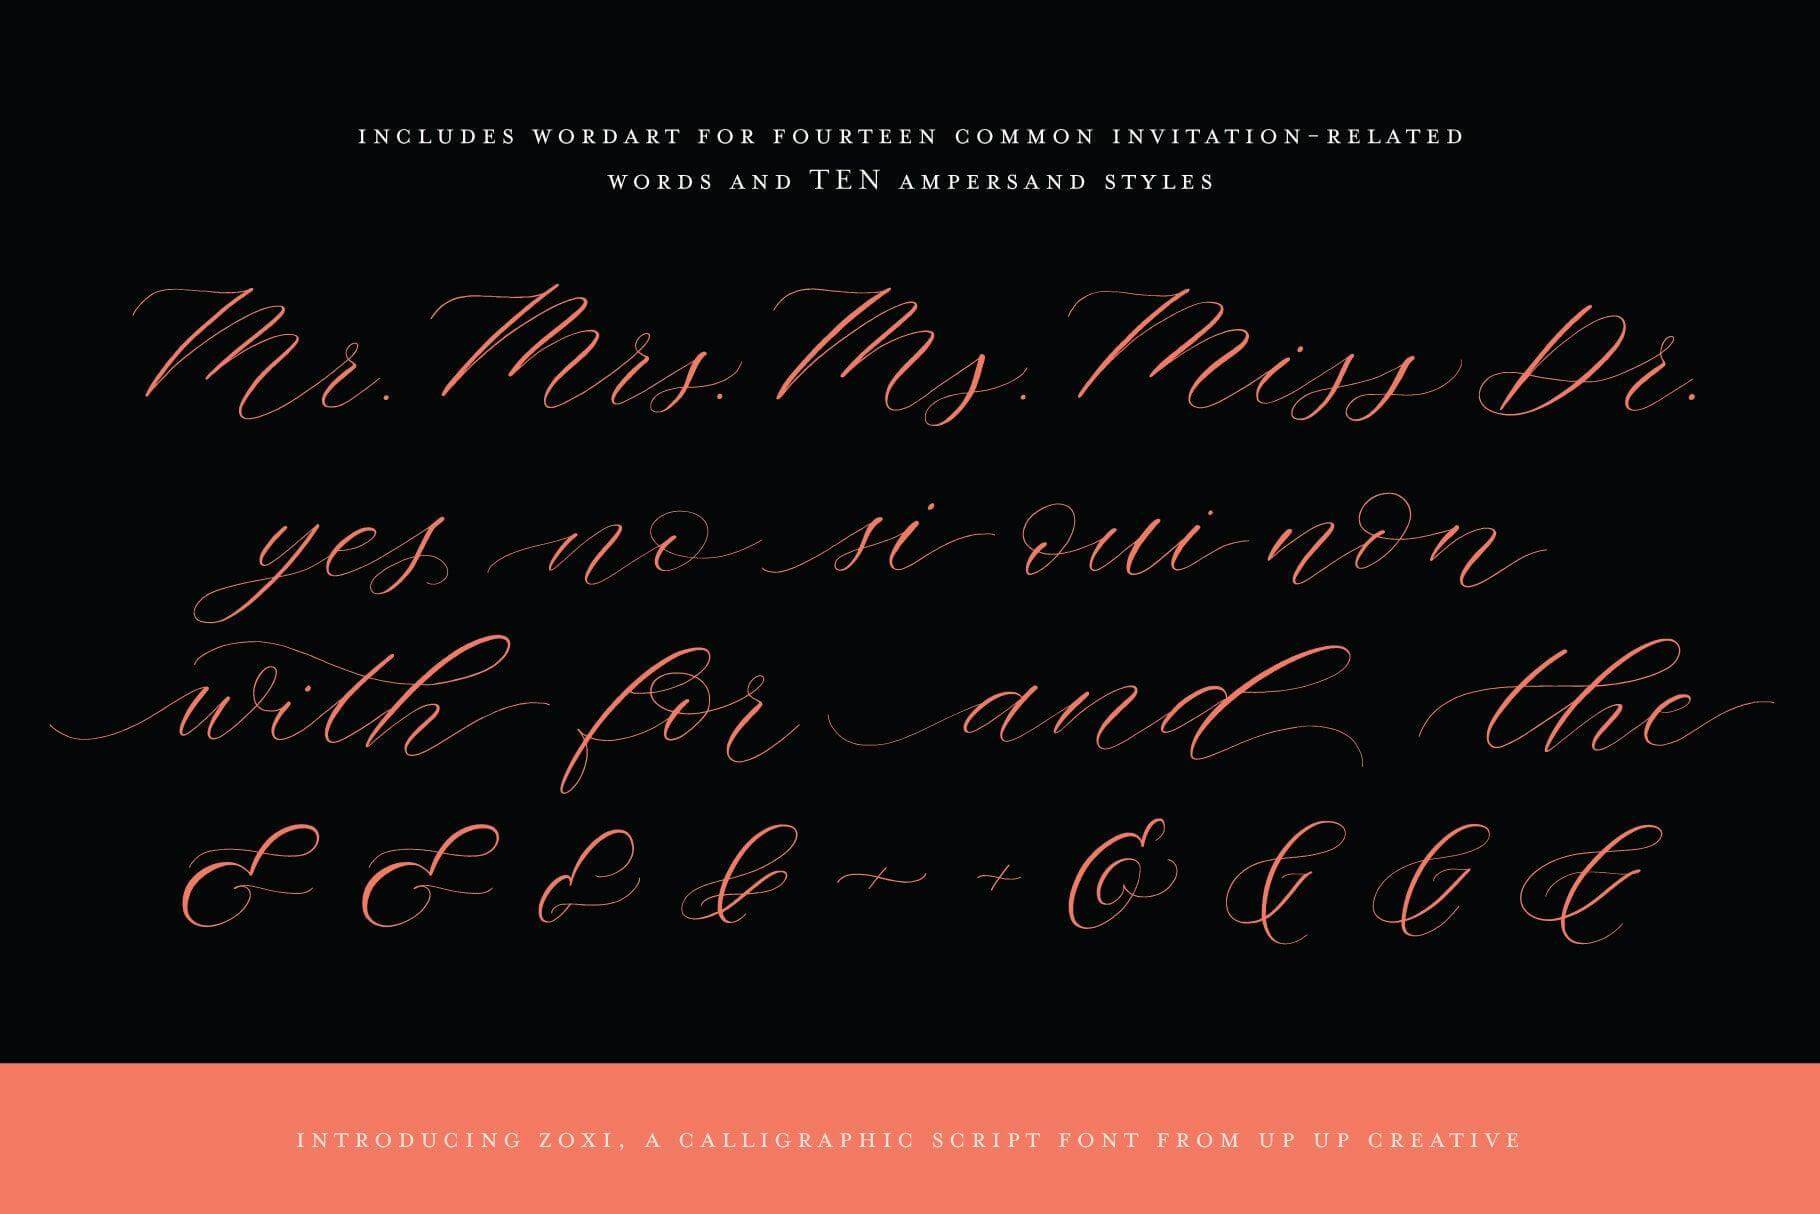 INCLUDES WORDART FOR FOURTEEN COMMON INVITATION-RELATED
WORDS AND TEN AMPERSAND STYLES
Mr. Mrs. Ms. Miss Dr.
yes no si oui non
with for and the
& & & & + + & & & &
INTRODUCING ZOXI, A CALLIGRAPHIC SCRIPT FONT FROM UP UP CREATIVE